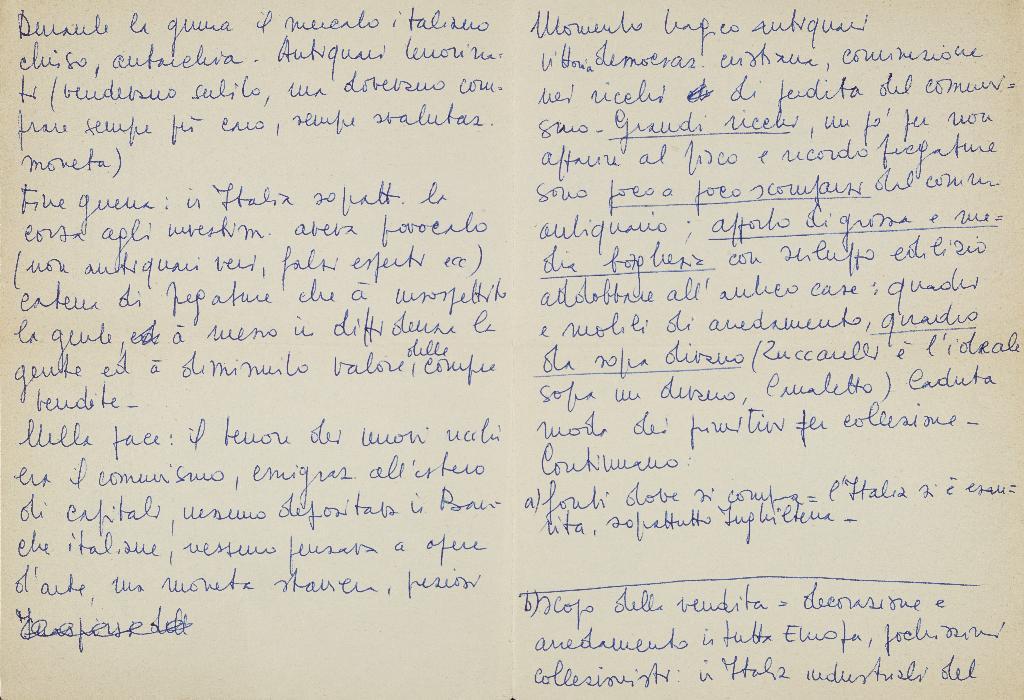 Durante la guerra il mercato italiano
chiso, autarchia. Antiquari terorizza-
ti (vendevano subito, ma dovevano com-
prare sempre più caro, sempre svalutaz.
moneta)
Fine guerra: in Italia sopratt. la
corsa agli investim. aveva provocato
(non antiquari veri, falsi esperti ecc)
catena di fregature che à insospettito
la gente, ed à messo in diffidenza la
gente ed à diminuito valore, delle compre
vendite -
Nella pace: il terrore dei nuovi ricchi
era il comunismo, emigraz. all'estero
di capitali, nessuno depositava in Ban-
che italiane, nessuno pensava a opere
d'arte, ma moneta straniera, preziosi
Momento tragico antiquari
Vittoria democraz. cristiana, convinzione
nei ricchi di perdita del comuni-
smo - Grandi ricchi, un po' per non
apparire al fisco e ricordo fregature
sono poco a poco scomparsi dal comm.
antiquario; apporto di grossa e me-
dia borghesia con sviluppo edilizio
addobbare all'antico case: quadri
e mobili di arredamento, quadro
da sopra divano (Zuccarelli è l'ideale
sopra un divano, Canaletto) Caduta
moda dei primitivi per collezione -
Continuano:
a) fonti dove si compra = l'Italia si è esau-
rita, sopratutto Inghilterra -
b) scopo della vendita = decorazione e
arredamento in tutta Europa, pochissimi
collezionisti: in Italia industriali del